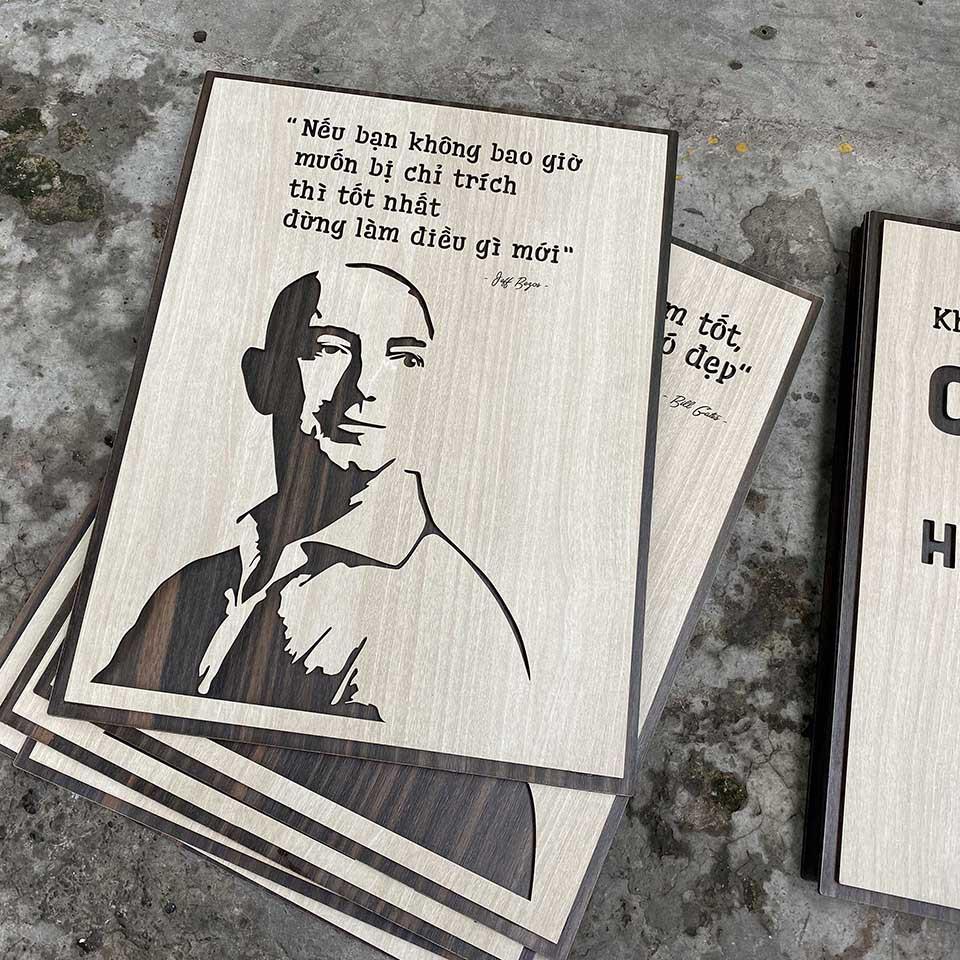 “Nếu bạn không bao giờ
muốn bị chỉ trích
thì tốt nhất
đừng làm điều gì mới“
- Jeff Bezos -
m tốt,
ó đẹp“
- Bill Gates -
Kh
H